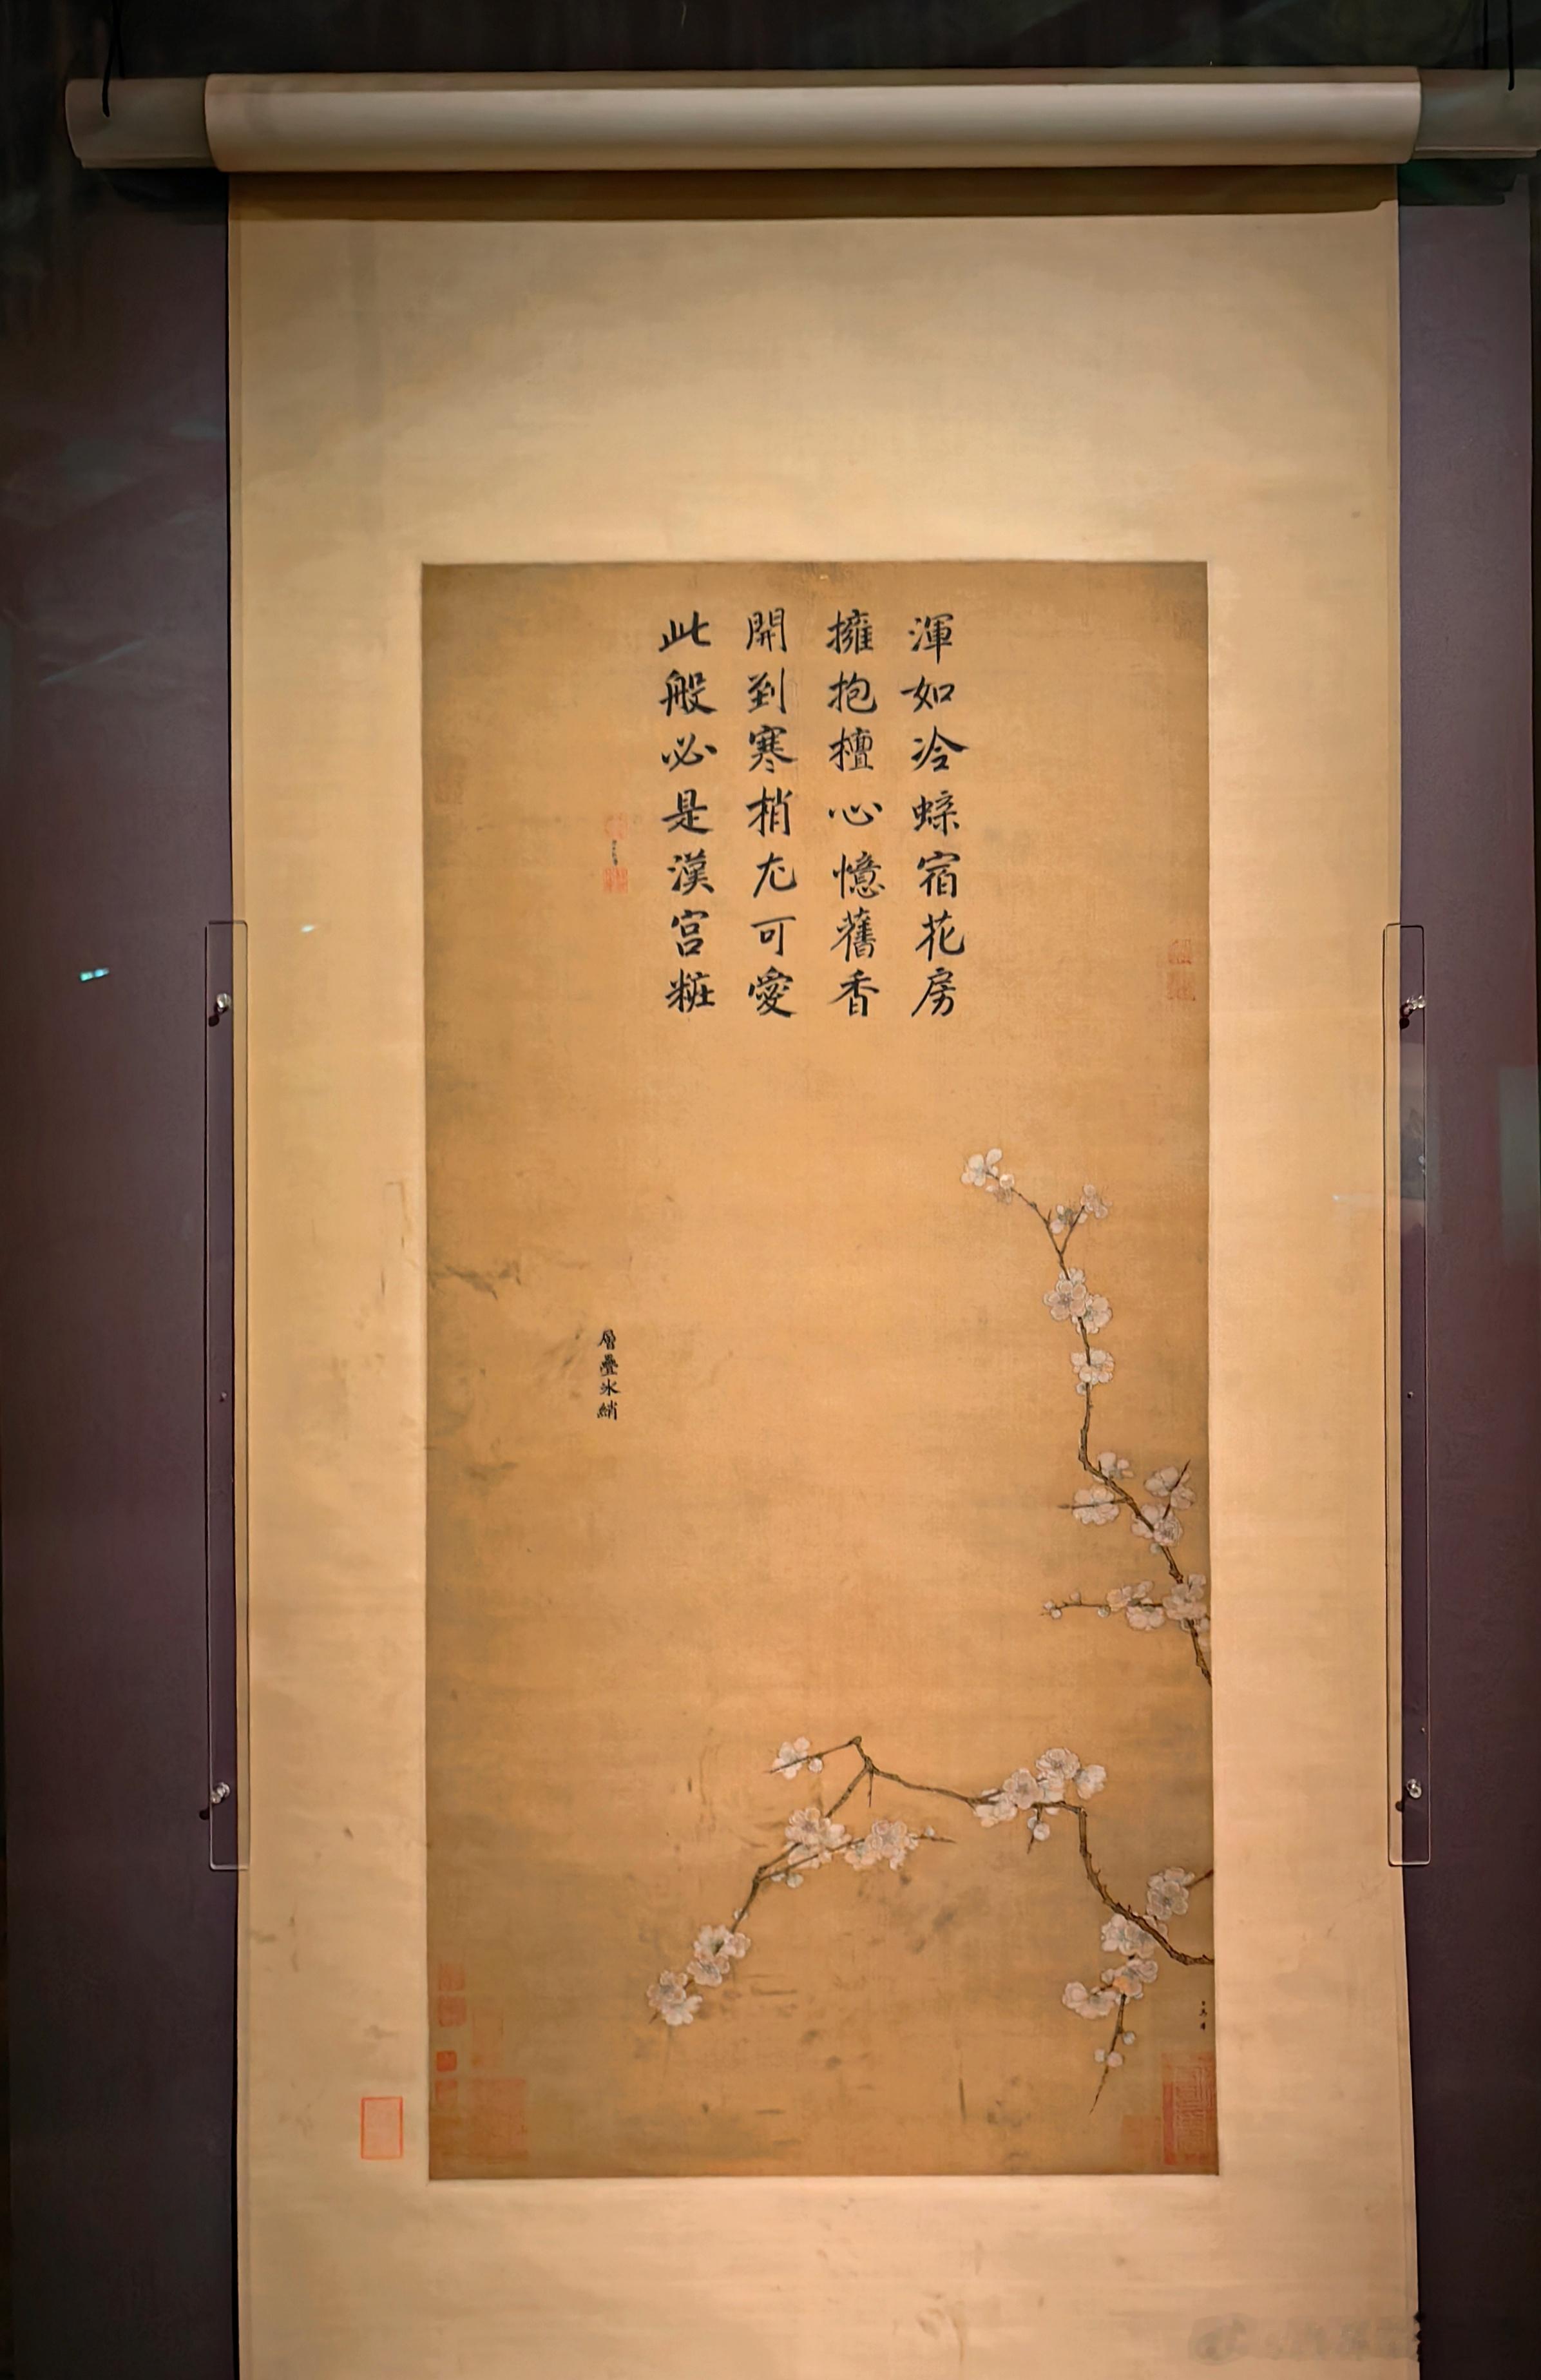 渾如冷蜨宿花房
擁抱檀心憶舊香
開到寒梢尤可愛
此般必是漢宮粧
層疊冰綃